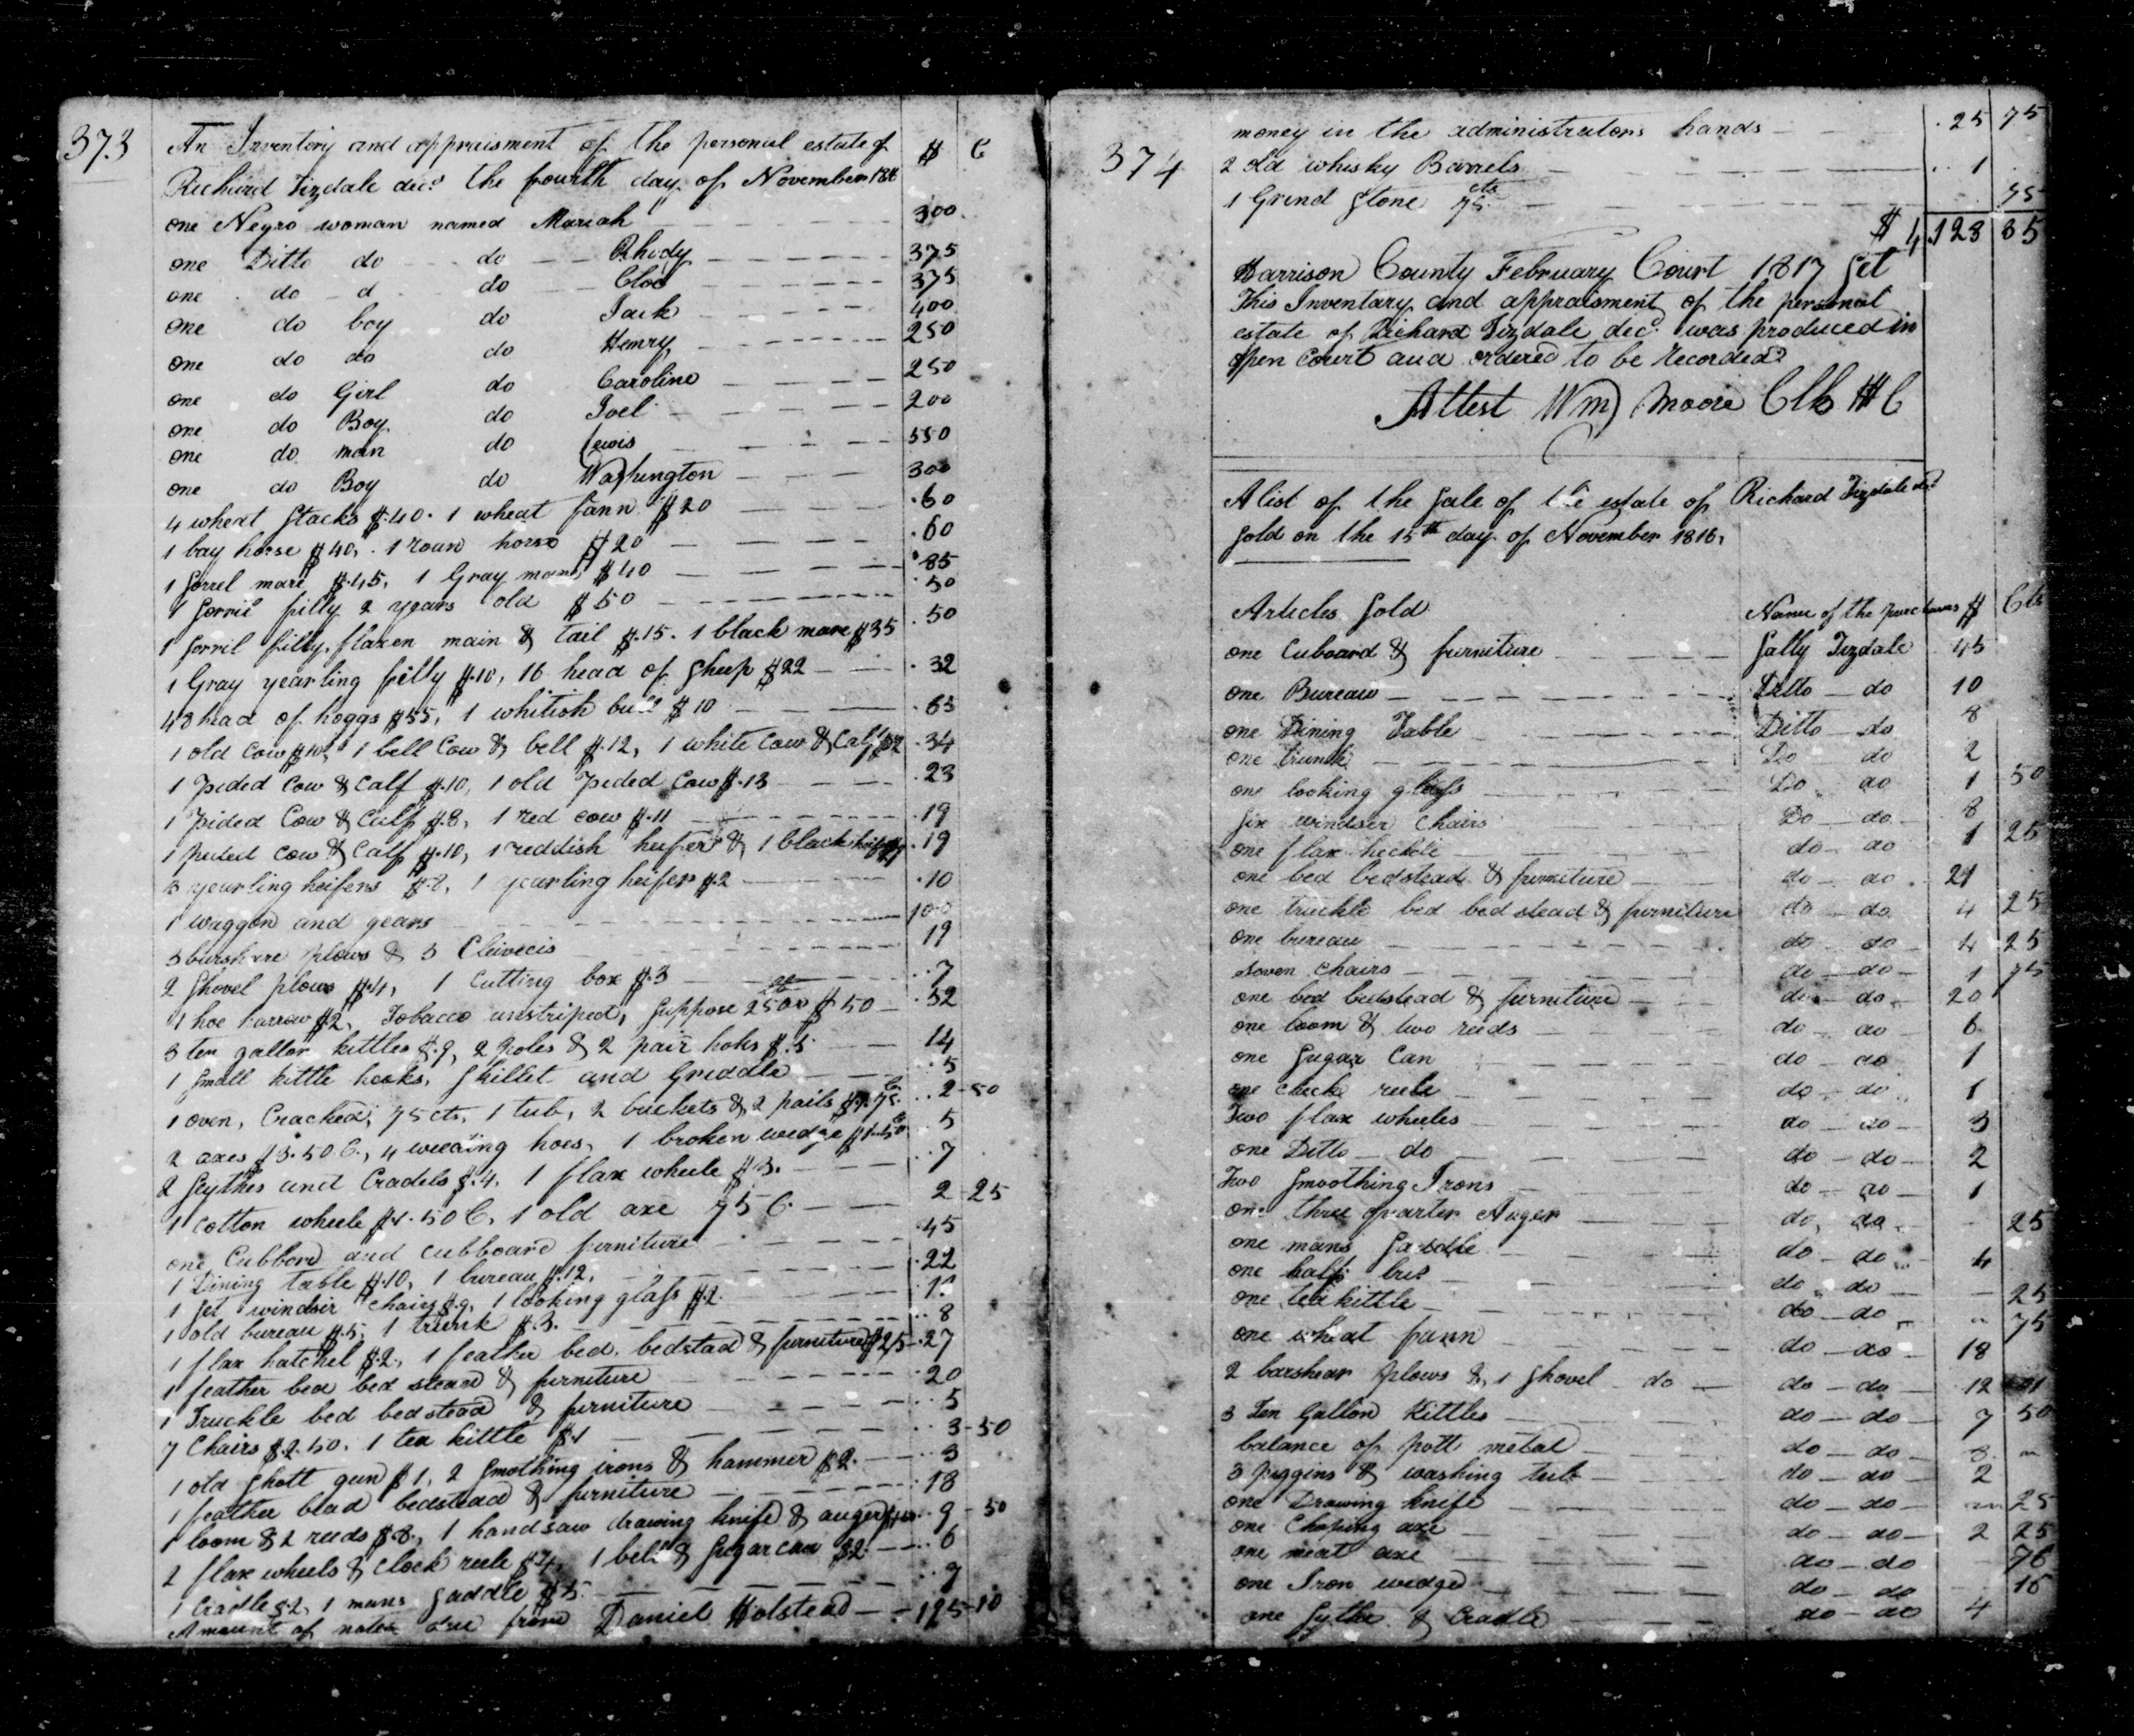 373
An Inventory and appraisment of the personal estate of $ C
Richard Tizdale decd the fourth day of November 1816
one Negro woman named Mariah 300
one Ditto do do Rhody 375
one do d do Cloe 375
one do boy do Jack 400
one do do do Henry 250
one do Girl do Caroline 250
one do Boy do Joel 200
one do man do Lewis 550
one do Boy do Washington 300
4 wheat stacks $40. 1 wheat fann $20 60
1 bay horse $40, 1 roan horse $20 60
1 sorrel mare $45, 1 Gray mare $40 85
1 sorril filly 2 years old $50 50
1 sorril filly flaxen main & tail $15. 1 black mare $35 50
1 Gray yearling filly $10, 16 head of sheep $22 32
48 head of hoggs $55, 1 whitish bull $10 65
1 old cow $10, 1 bell cow & bell $12, 1 white cow & calf $12 34
1 pided cow & calf $10, 1 old pided cow $13 23
1 pided Cow & Calf $8, 1 red cow $11 19
1 pided cow & calf $10, 1 reddish heifer & 1 black heifer $9 19
3 yearling heifers $8, 1 yearling heifer $2 10
1 waggon and gears 100
3 barshare plows & 3 Clivecis 19
2 shovel plows $4, 1 cutting box $3 7
1 hoe harrow $2, Tobacco unstriped, suppose 2500 $50 52
3 ten gallon kittles $9, 2 poles & 2 pair hoks $5 14
1 small kittle hooks, skillet and Griddle 5
1 oven, Cracked, 75 cts, 1 tub, 2 buckets & 2 pails $1.75 C 2-50
2 axes $3.50 C., 4 weeding hoes, 1 broken wedge $1.50 5
2 scythes and Cradels $4, 1 flax wheele $3. 7
1 cotton wheele $1.50 C, 1 old axe 75 C 2-25
one Cubbord and cubboard furniture 45
1 Dining table $10, 1 bureau $12, 22
1 set windsir chairs $9, 1 looking glass $2 11
1 old bureau $5, 1 trunk $3. 8
1 flax hatchel $2, 1 feather bed, bedstad & furniture $25 27
1 feather bed bed stead & furniture 20
1 Truckle bed bedstead & furniture 5
7 Chairs $2.50. 1 tea kittle $1 3-50
1 old shott gun $1, 2 smothing irons & hammer $2. 3
1 feather bead bedstead & furniture 18
1 loom & 2 reeds $8, 1 handsaw drawing knife & auger 9-50
2 flax wheels & Clock reele $4, 1 bell & sugar can $2 6
1 Cradle $2, 1 mans saddle $5 7
Amount of notes due from Daniel Holstead 195-10
374
money in the administrators hands 25 75
2 old whisky Barrels 1
1 Grind stone 75 cts 75
$ 4,128 85
Harrison County February Court 1817 Sct
This Inventary and appraisment of the personal
estate of Richard Tizdale decd was produced in
open court and ordered to be recorded
Attest Wm Moore Clk H C
A list of the sale of the estate of Richard Tizdale decd
sold on the 15th day of November 1816,
Articles Sold Name of the purchasers $ Cts
one Cuboard & furniture Sally Tizdale 45
one Bureau Ditto do 10
one Dining Table Ditto do 8
one trunk Do do 2
one looking glass Do do 1 50
six windser chairs Do do 8
one flax heckle do do 1 25
one bed bedstead & furniture do do 21
one truckle bed bed stead & furniture do do 4 25
one bureau do do 4 25
seven chairs do do 1 75
one bed bedstead & furniture do do 20
one loom & two reeds do do 6
one sugar Can do do 1
one check reele do do 1
Two flax wheeles do do 3
one Ditto do do do 2
Two smoothing Irons do do 1
one three quarter Auger do do 25
one mans saddle do do 4
one half do do 25
one tea kittle do do 75
one wheat fann do do 18
2 barshear plows & 1 shovel do do do 12 01
3 Ten Gallon Kittles do do 7 50
balance of pott metal do do 3
3 piggins & washing tub do do 2
one Drawing knife do do 25
one Choping axe do do 2 25
one meat axe do do 76
one Iron wedge do do 16
one sythe & Cradle do do 4